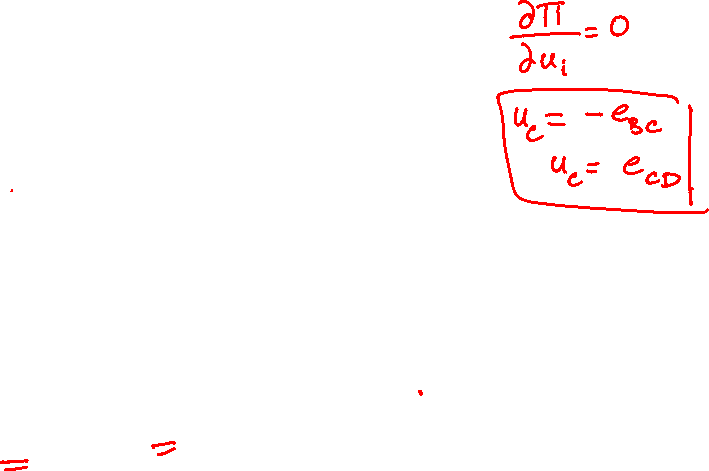 ∂Π/∂u_i = 0
u_C = - e_BC
u_C = e_CD
=
=